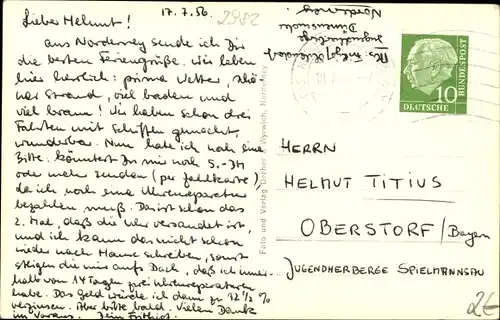 17.7.56.
2982
Lieber Helmut!
Aus Norderney sende ich Dir
die besten Feriengrüße. Wir leben
hier herrlich: prima Wetter, schö-
ner Strand, viel baden und
viel braun! Wir haben schon drei
Fahrten mit Schiffen gemacht,
wunderbar. Nun habe ich noch eine
Bitte. Könntest Du mir noch 5.-DM
oder mehr senden (per Zahlkarte)?
Da ich noch eine Uhrenreparatur
bezahlen muß. Das ist schon das
2. Mal, daß die Uhr versandet ist,
und ich kann das nicht schon
wieder nach Hause schreiben, sonst
steigen die mir aufs Dach, daß ich inner-
halb von 14 Tagen zwei Uhrenreparaturen
habe. Das Geld würde ich dann zu 12½ %
verzinsen. Aber bitte bald. Vielen Dank
im Voraus. Dein
Jugendherberge
Dünensender
Norderney
Foto und Verlag Dreher Wyrwich, Norderney
10
DEUTSCHE
BUNDESPOST
HERRN
HELMUT TITIUS
OBERSTORF/Bayern
JUGENDHERBERGE SPIELMANNSAU
2€